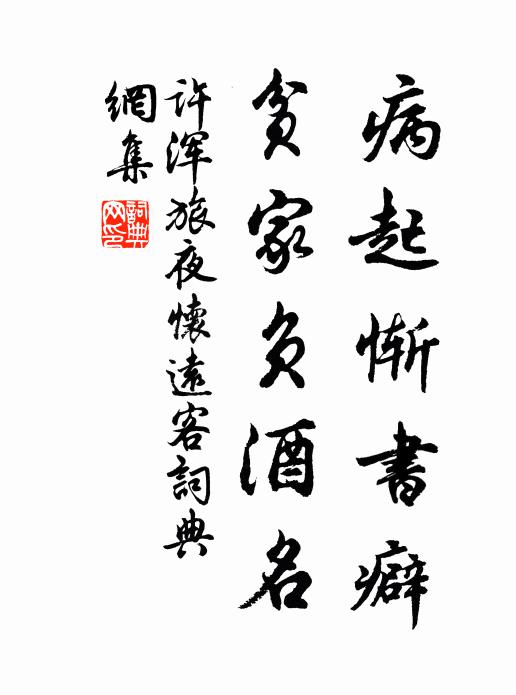 病起慚書癖
貧家負酒名
許渾旅夜懷遠客詞典
網集
詞典網印